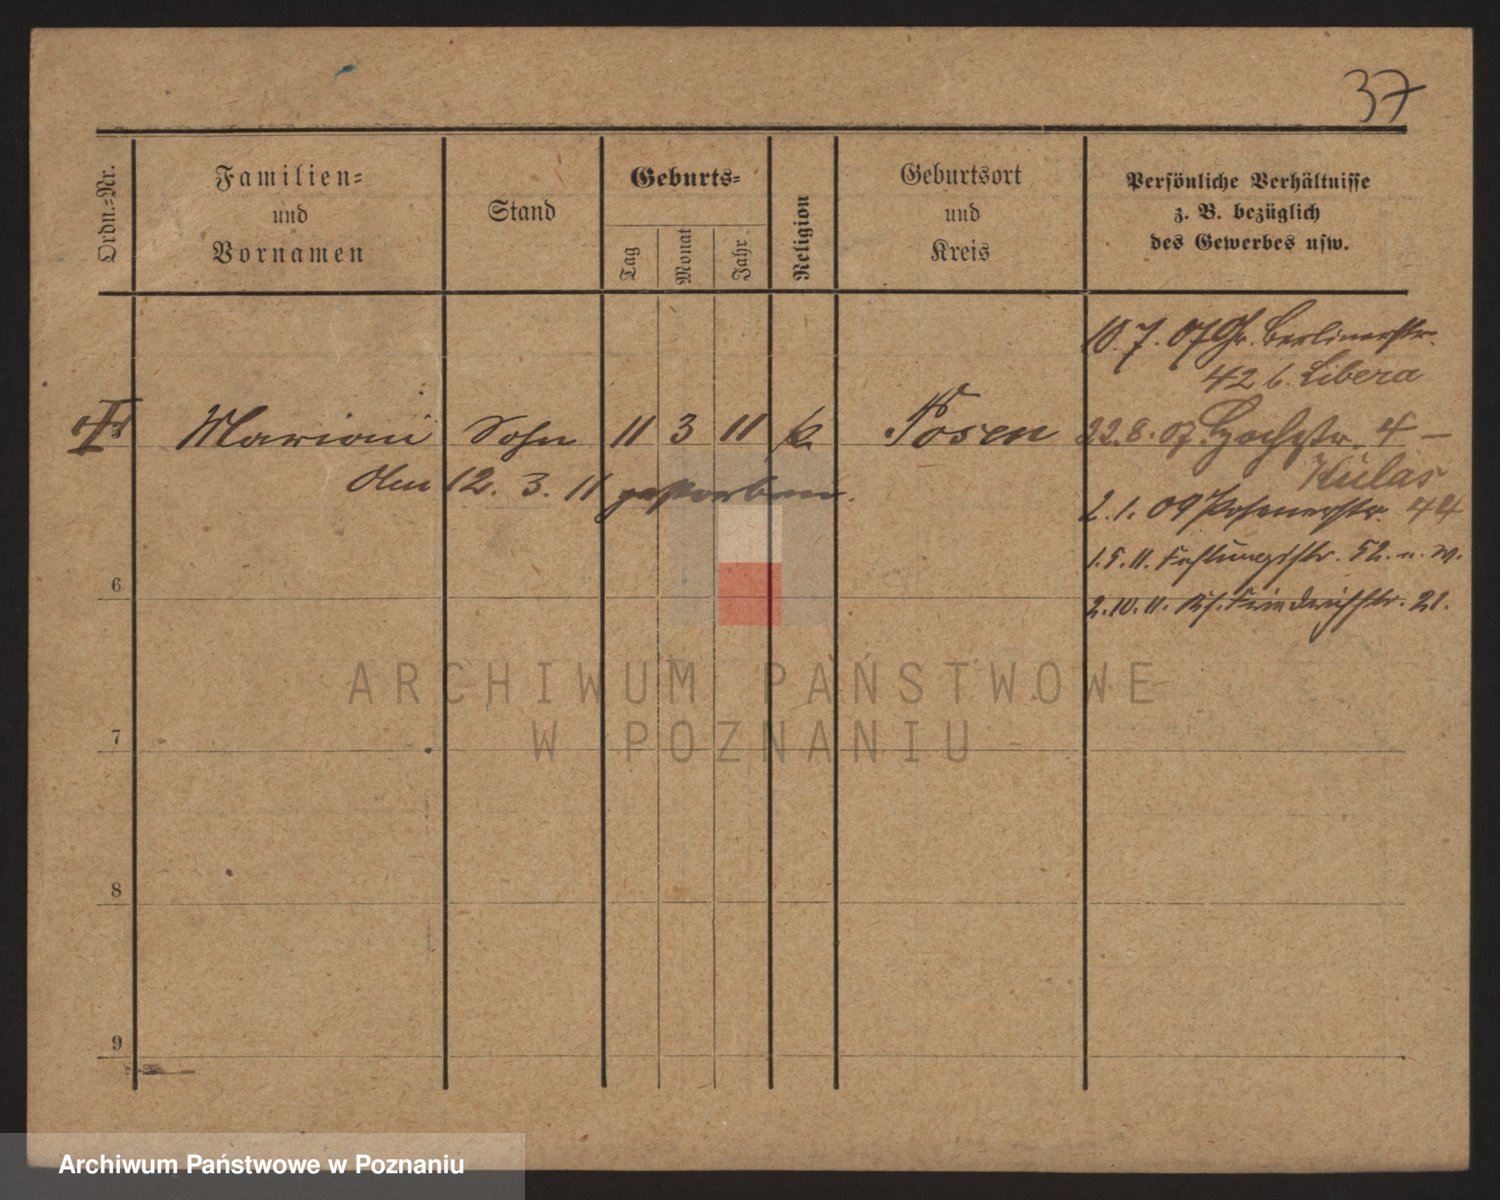 37
Ordn.=Nr.
Familien=
und
Vornamen
Stand
Geburts=
Tag
Monat
Jahr
Religion
Geburtsort
und
Kreis
Persönliche Verhältnisse
z. B. bezüglich
des Gewerbes usw.
10.7.07 Gr. Berlinerstr.
42 b. Libera
Marian Sohn 11 3 11 k. Posen 22.8.07 Hochstr. 4 –
Kulas
den 12. 3. 11 gestorben.
2.1.09 Posenerstr. 44
1.5.11. Festungsstr. 52. n. W.
6
2.10.11. Kf. Friedrichstr. 21.
ARCHIWUM PAŃSTWOWE
W POZNANIU
7
8
9
Archiwum Państwowe w Poznaniu